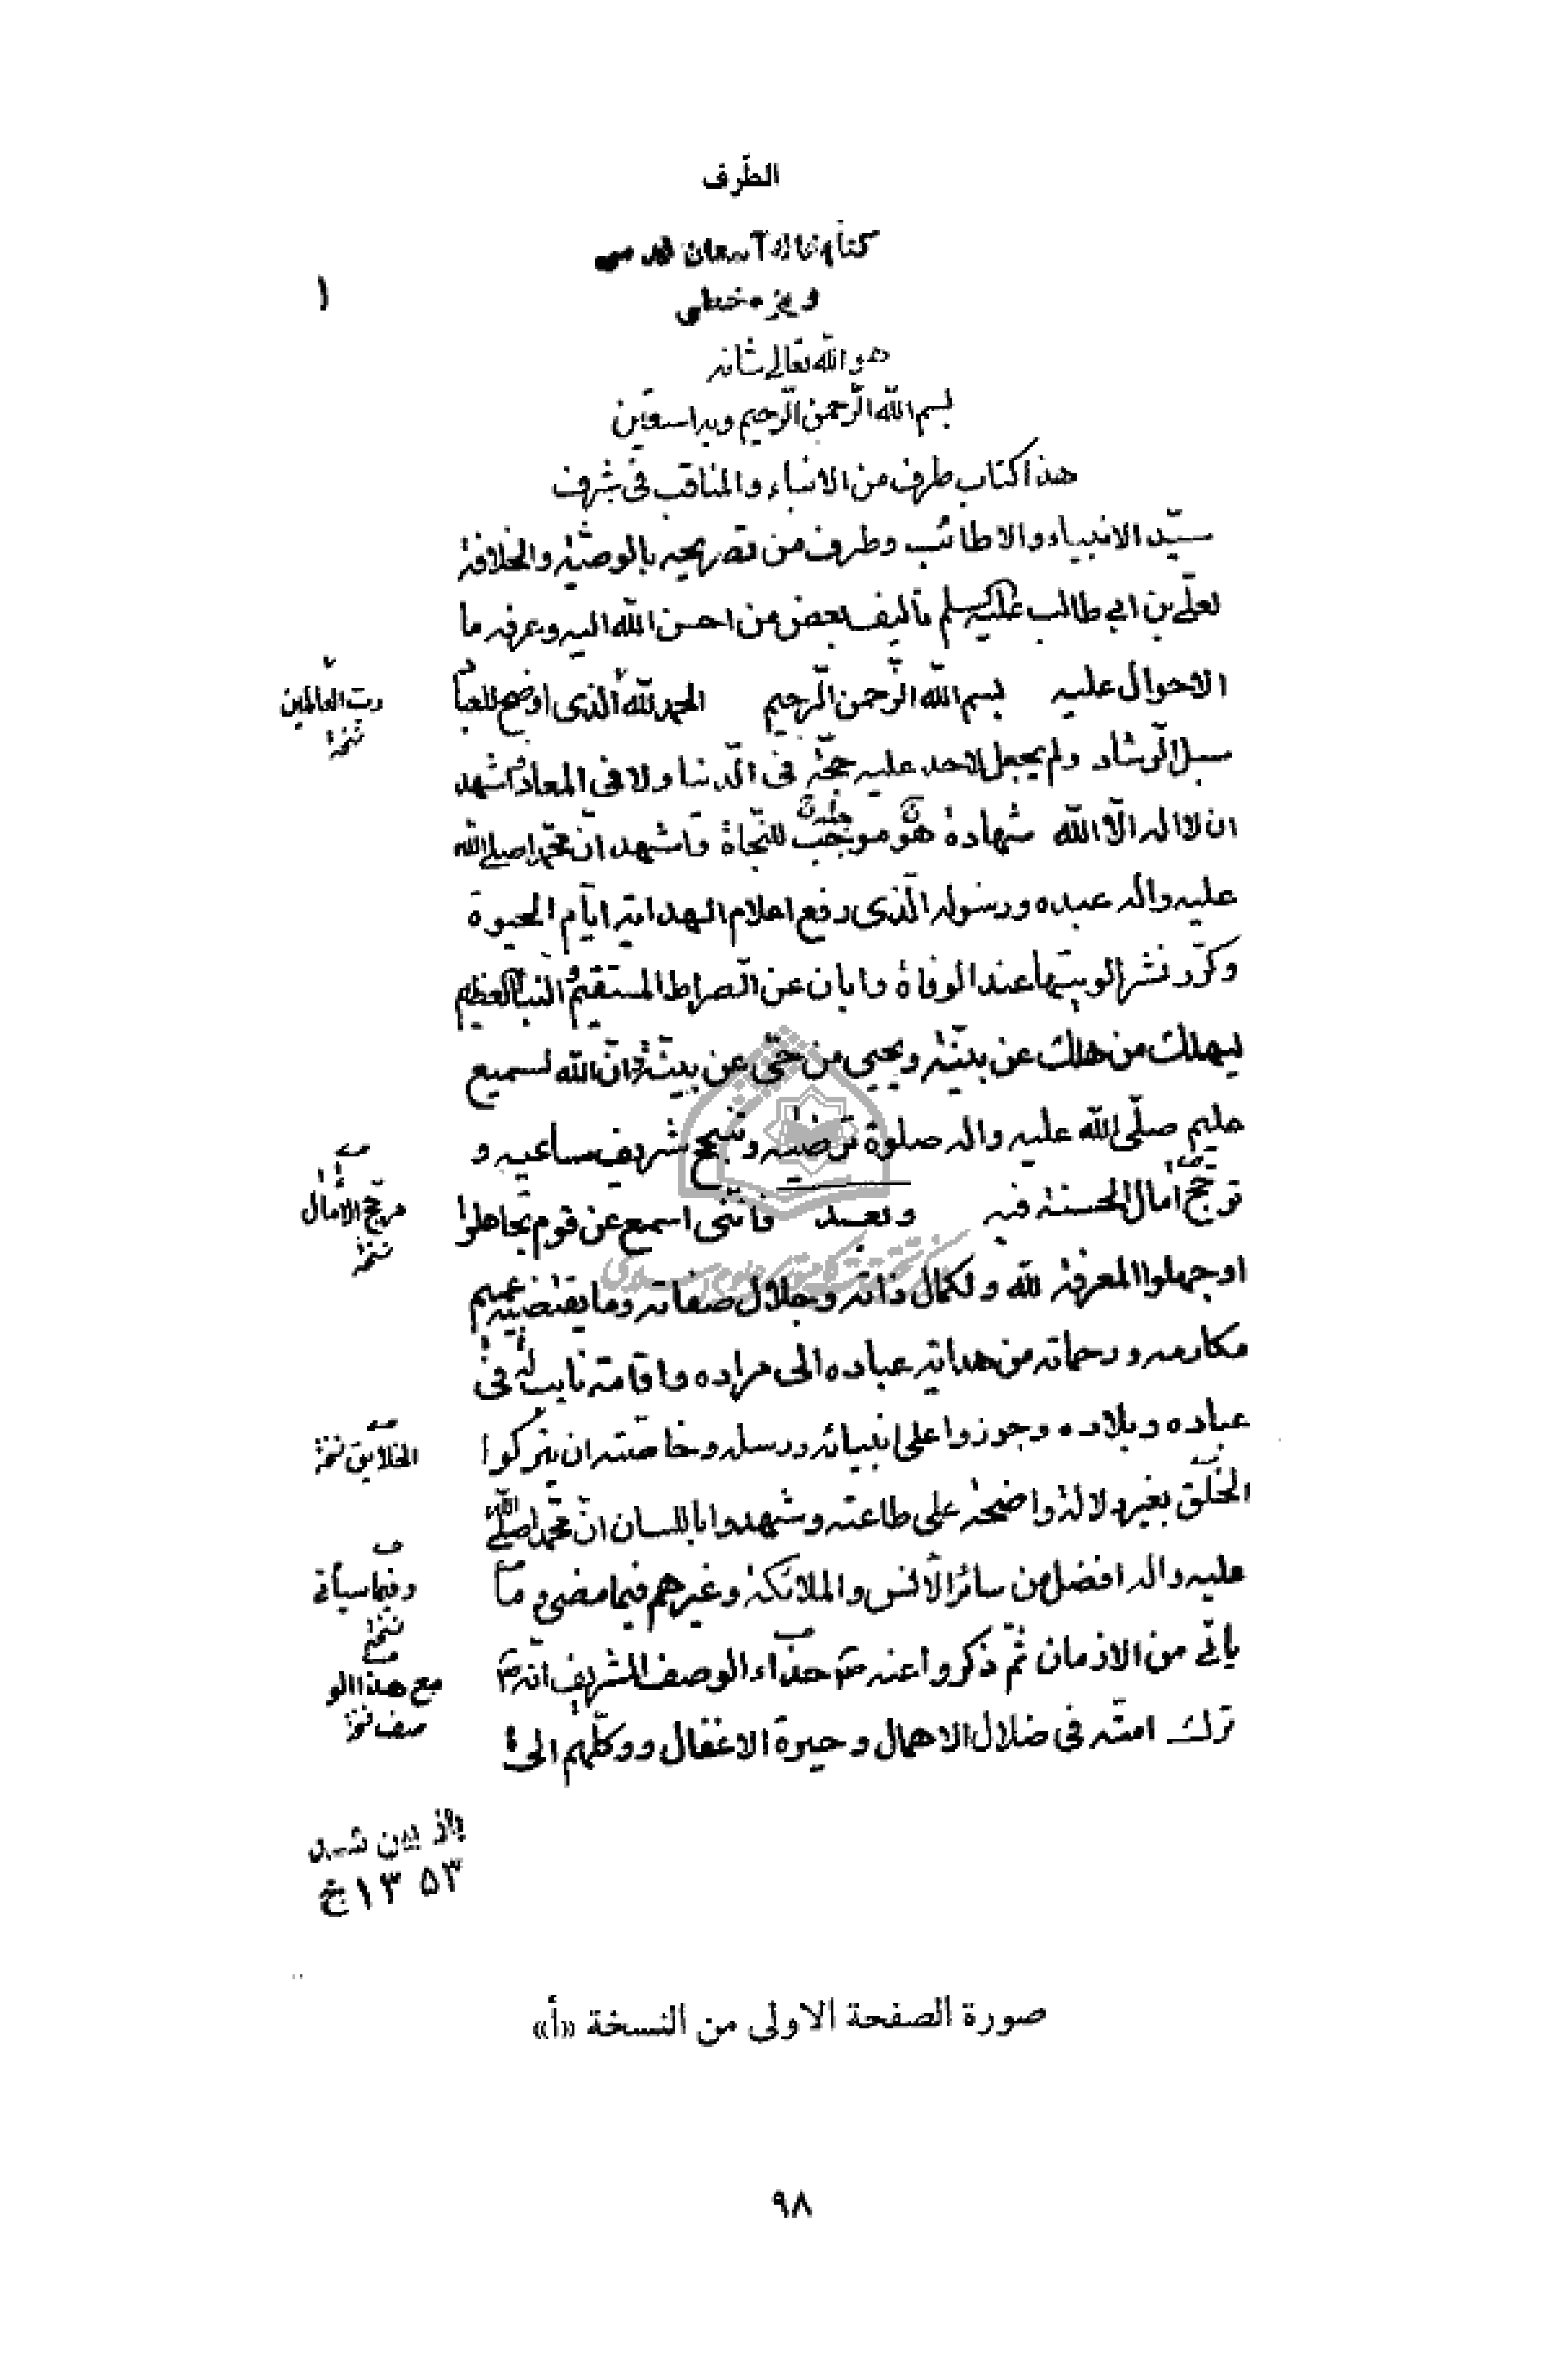 الطّرف
كتابخانه آستان قدس
١
هو الله تعالى شانه
بسم الله الرّحمن الرّحيم وبه استعين
هذا كتاب طرف من الانباء والمناقب فى شرف
سيّد الانبياء والاطائب وطرف من تصريحه بالوصيّة والخلافة
لعلى بن ابى طالب عليه السلم تاليف بعض من احسن الله اليه وعرفه ما
الاحوال عليه بسم الله الرّحمن الرّحيم الحمد لله الذى اوضح للعبا
ربّ العالمين
نسخة
سبل الرّشاد ولم يجعل لاحد عليه حجّة فى الدّنيا ولا فى المعاد اشهد
ان لا اله الّا الله شهادة موجب للنّجاة واشهد انّ محمّدا صلى الله
عليه واله عبده ورسوله الّذى رفع اعلام الهداية ايّام الحيوة
وكرّر نشر الويتها عند الوفاة وابان عن الصراط المستقيم والنبأ العظيم
ليهلك من هلك عن بيّنة ويحيى من حىّ عن بيّنة وانّ الله لسميع
عليم صلّى الله عليه واله صلوة ترضيه وتبهج شريف مساعيه و
ترجّح آمال الحسنة فيه وبعد فانّنى اسمع عن قوم تجاهلوا
الآمال
نسخة
او جهلوا المعرفة لله ولكمال ذاته وجلال صفاته وما يقتضيه عميم
مكارمه ورحماته من هداية عباده الى مراده واقامة نايب له فى
عباده وبلاده وجوزوا على انبيائه ورسله وخاصّته ان يتركوا
الخلايق نسخة
الخلق بغير دلالة واضحة على طاعته وشهدوا باللسان انّ محمّدا صلى الله
عليه واله افضل من سائر الانس والملائكة وغيرهم فيما مضى وما
وفيما سيأتى
نسخة
ياتى من الازمان ثمّ ذكروا عنه حذاء الوصف الشريف انّه
مع هذا الو
صف نسخة
ترك امّته فى ضلال الاهمال وحيرة الاغفال ووكّلهم الى
باز بين شد
١٣٥٣
صورة الصفحة الاولى من النسخة «أ»
٩٨